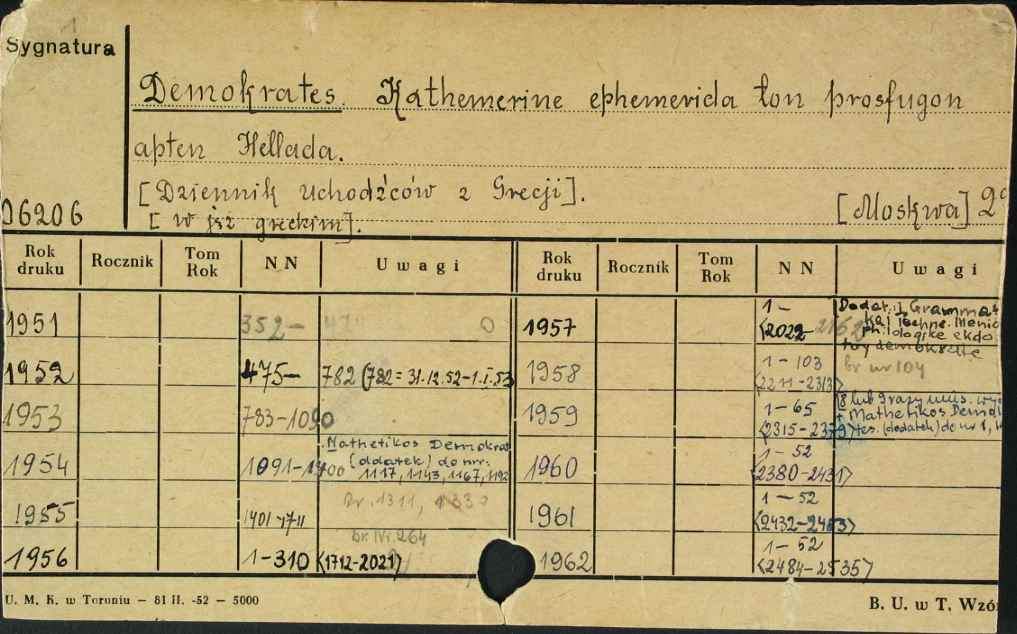 Sygnatura
Demokrates. Kathemerine ephemerida ton prosfugon
apten Hellada.
[Dziennik uchodźców z Grecji].
06206 [w jęz greckim]. [Moskwa] 2°
Rok druku Rocznik Tom Rok NN Uwagi Rok druku Rocznik Tom Rok NN Uwagi
1951 352- 0 1957 1- <2022- Dodat.: Gramma
Kai Techne. Menia
ekdo
toy demokrate
1952 475- 782 (782 = 31.12.52-1.I.53 1958 1-103 <2211-2313> br nr 104
1953 783-1090 1959 1-65 <2315-2379> 8 lub 9 razy
+ Mathetikos Demo
tes. (dodatek) do nr 1,
1954 1091-1400 Mathetikos Demokra
(dodatek) do nr:
1117, 1143, 1167, 1192 1960 1-52 <2380-2431>
1955 1401-1711 Br. 1311, 1330 1961 1-52 <2432-2483>
br. Nr. 264
1956 1-310 <1712-2021> 1962 1-52 <2484-2535>
U. M. K. w Toruniu — 81 II. -52 — 5000 B. U. w T. Wzó